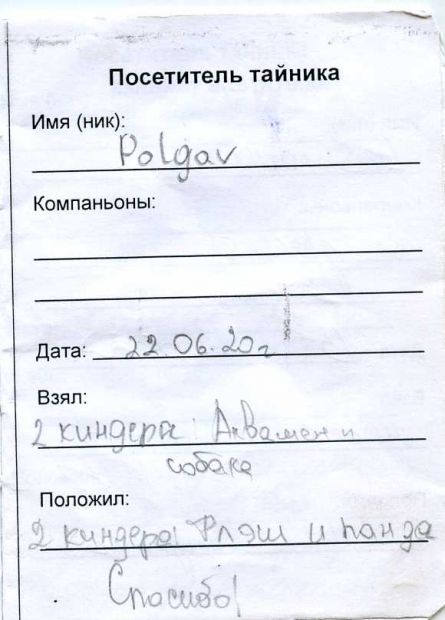 Посетитель тайника
Имя (ник):
Polgav
Компаньоны:
Дата: 22.06.20г
Взял:
2 киндера: Аквамен и
собака
Положил:
2 киндера: Флэш и панда
Спасибо!